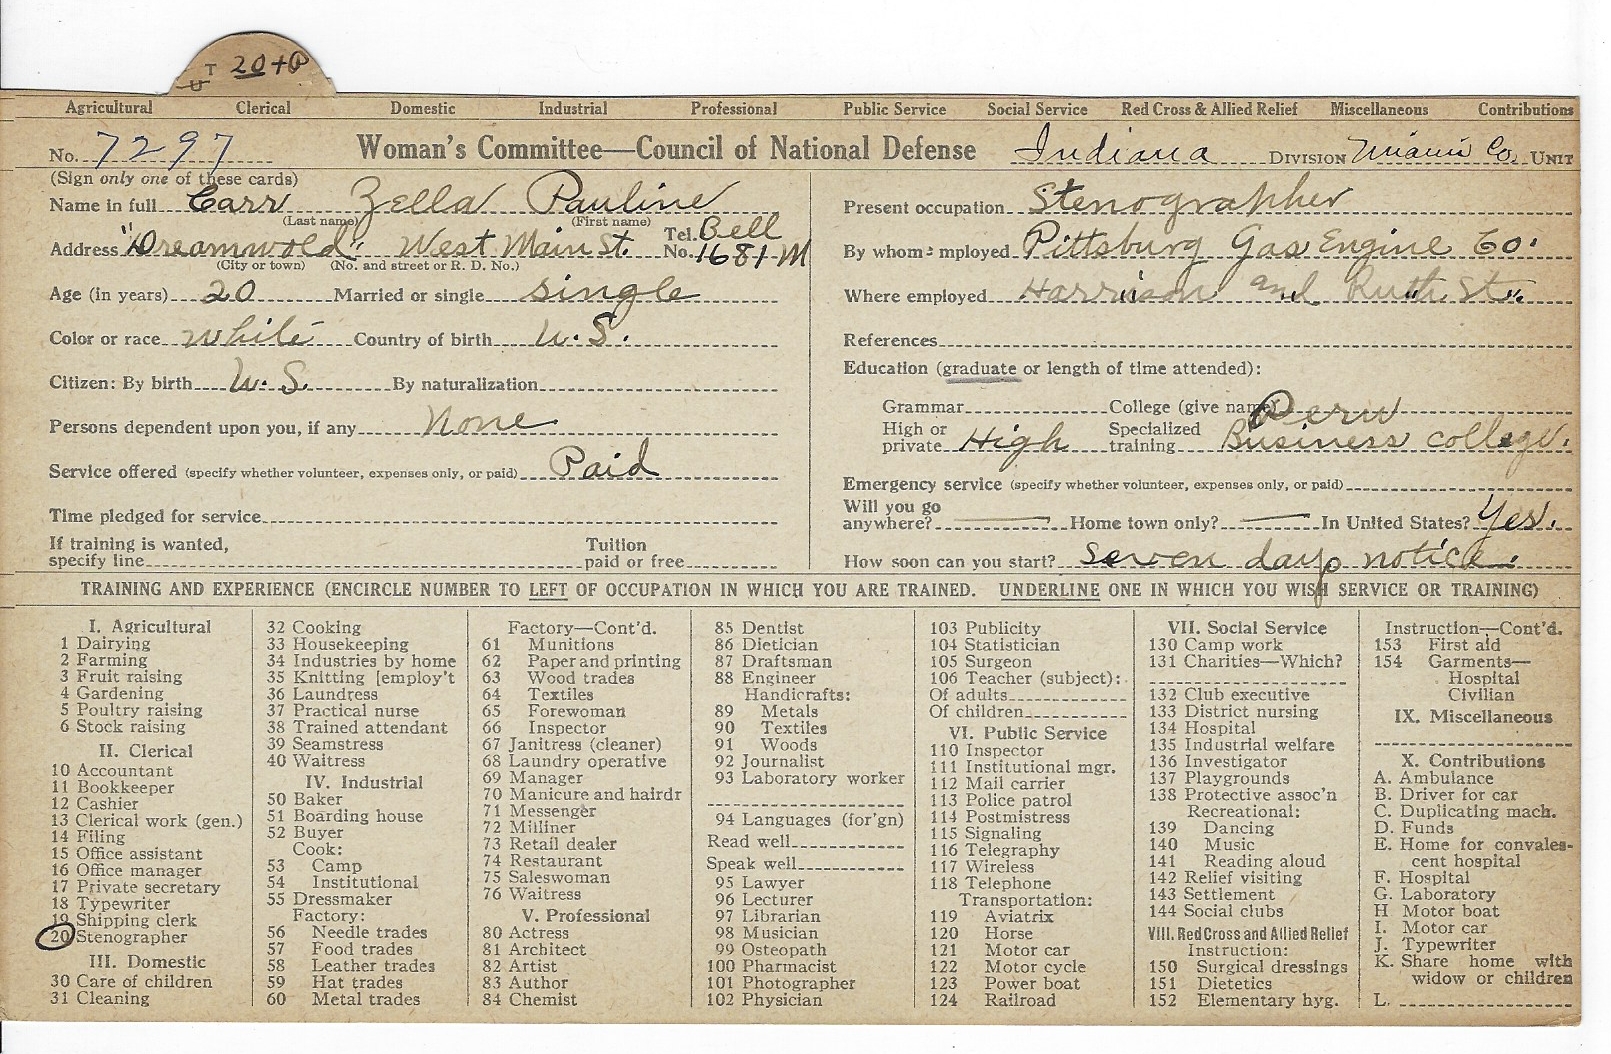 U T 20+P
Agricultural Clerical Domestic Industrial Professional Public Service Social Service Red Cross & Allied Relief Miscellaneous Contributions
No. 7297 Woman's Committee—Council of National Defense Indiana DIVISION Miami Co. UNIT
(Sign only one of these cards)
Name in full Carr Zella Pauline
(Last name) (First name)
Address "Dreamwold" West Main St. Tel. No. Bell 1681-M
(City or town) (No. and street or R. D. No.)
Age (in years) 20 Married or single single
Color or race white Country of birth U.S.
Citizen: By birth U.S. By naturalization
Persons dependent upon you, if any None
Service offered (specify whether volunteer, expenses only, or paid) Paid
Time pledged for service
If training is wanted, Tuition
specify line paid or free
Present occupation Stenographer
By whom employed Pittsburg Gas Engine Co.
Where employed Harrison and Ruth Sts.
References
Education (graduate or length of time attended):
Grammar College (give name) Peru
High or private High Specialized training Business college.
Emergency service (specify whether volunteer, expenses only, or paid)
Will you go anywhere? Home town only? In United States? Yes.
How soon can you start? seven days notice.
TRAINING AND EXPERIENCE (ENCIRCLE NUMBER TO LEFT OF OCCUPATION IN WHICH YOU ARE TRAINED. UNDERLINE ONE IN WHICH YOU WISH SERVICE OR TRAINING)
I. Agricultural
1 Dairying
2 Farming
3 Fruit raising
4 Gardening
5 Poultry raising
6 Stock raising
II. Clerical
10 Accountant
11 Bookkeeper
12 Cashier
13 Clerical work (gen.)
14 Filing
15 Office assistant
16 Office manager
17 Private secretary
18 Typewriter
19 Shipping clerk
20 Stenographer
III. Domestic
30 Care of children
31 Cleaning
32 Cooking
33 Housekeeping
34 Industries by home
35 Knitting [employ't
36 Laundress
37 Practical nurse
38 Trained attendant
39 Seamstress
40 Waitress
IV. Industrial
50 Baker
51 Boarding house
52 Buyer
Cook:
53 Camp
54 Institutional
55 Dressmaker
Factory:
56 Needle trades
57 Food trades
58 Leather trades
59 Hat trades
60 Metal trades
Factory—Cont'd.
61 Munitions
62 Paper and printing
63 Wood trades
64 Textiles
65 Forewoman
66 Inspector
67 Janitress (cleaner)
68 Laundry operative
69 Manager
70 Manicure and hairdr
71 Messenger
72 Milliner
73 Retail dealer
74 Restaurant
75 Saleswoman
76 Waitress
V. Professional
80 Actress
81 Architect
82 Artist
83 Author
84 Chemist
85 Dentist
86 Dietician
87 Draftsman
88 Engineer
Handicrafts:
89 Metals
90 Textiles
91 Woods
92 Journalist
93 Laboratory worker
94 Languages (for'gn)
Read well
Speak well
95 Lawyer
96 Lecturer
97 Librarian
98 Musician
99 Osteopath
100 Pharmacist
101 Photographer
102 Physician
103 Publicity
104 Statistician
105 Surgeon
106 Teacher (subject):
Of adults
Of children
VI. Public Service
110 Inspector
111 Institutional mgr.
112 Mail carrier
113 Police patrol
114 Postmistress
115 Signaling
116 Telegraphy
117 Wireless
118 Telephone
Transportation:
119 Aviatrix
120 Horse
121 Motor car
122 Motor cycle
123 Power boat
124 Railroad
VII. Social Service
130 Camp work
131 Charities—Which?
132 Club executive
133 District nursing
134 Hospital
135 Industrial welfare
136 Investigator
137 Playgrounds
138 Protective assoc'n
Recreational:
139 Dancing
140 Music
141 Reading aloud
142 Relief visiting
143 Settlement
144 Social clubs
VIII. Red Cross and Allied Relief
Instruction:
150 Surgical dressings
151 Dietetics
152 Elementary hyg.
Instruction—Cont'd.
153 First aid
154 Garments—
Hospital
Civilian
IX. Miscellaneous
X. Contributions
A. Ambulance
B. Driver for car
C. Duplicating mach.
D. Funds
E. Home for convales-
cent hospital
F. Hospital
G. Laboratory
H Motor boat
I. Motor car
J. Typewriter
K. Share home with
widow or children
L.